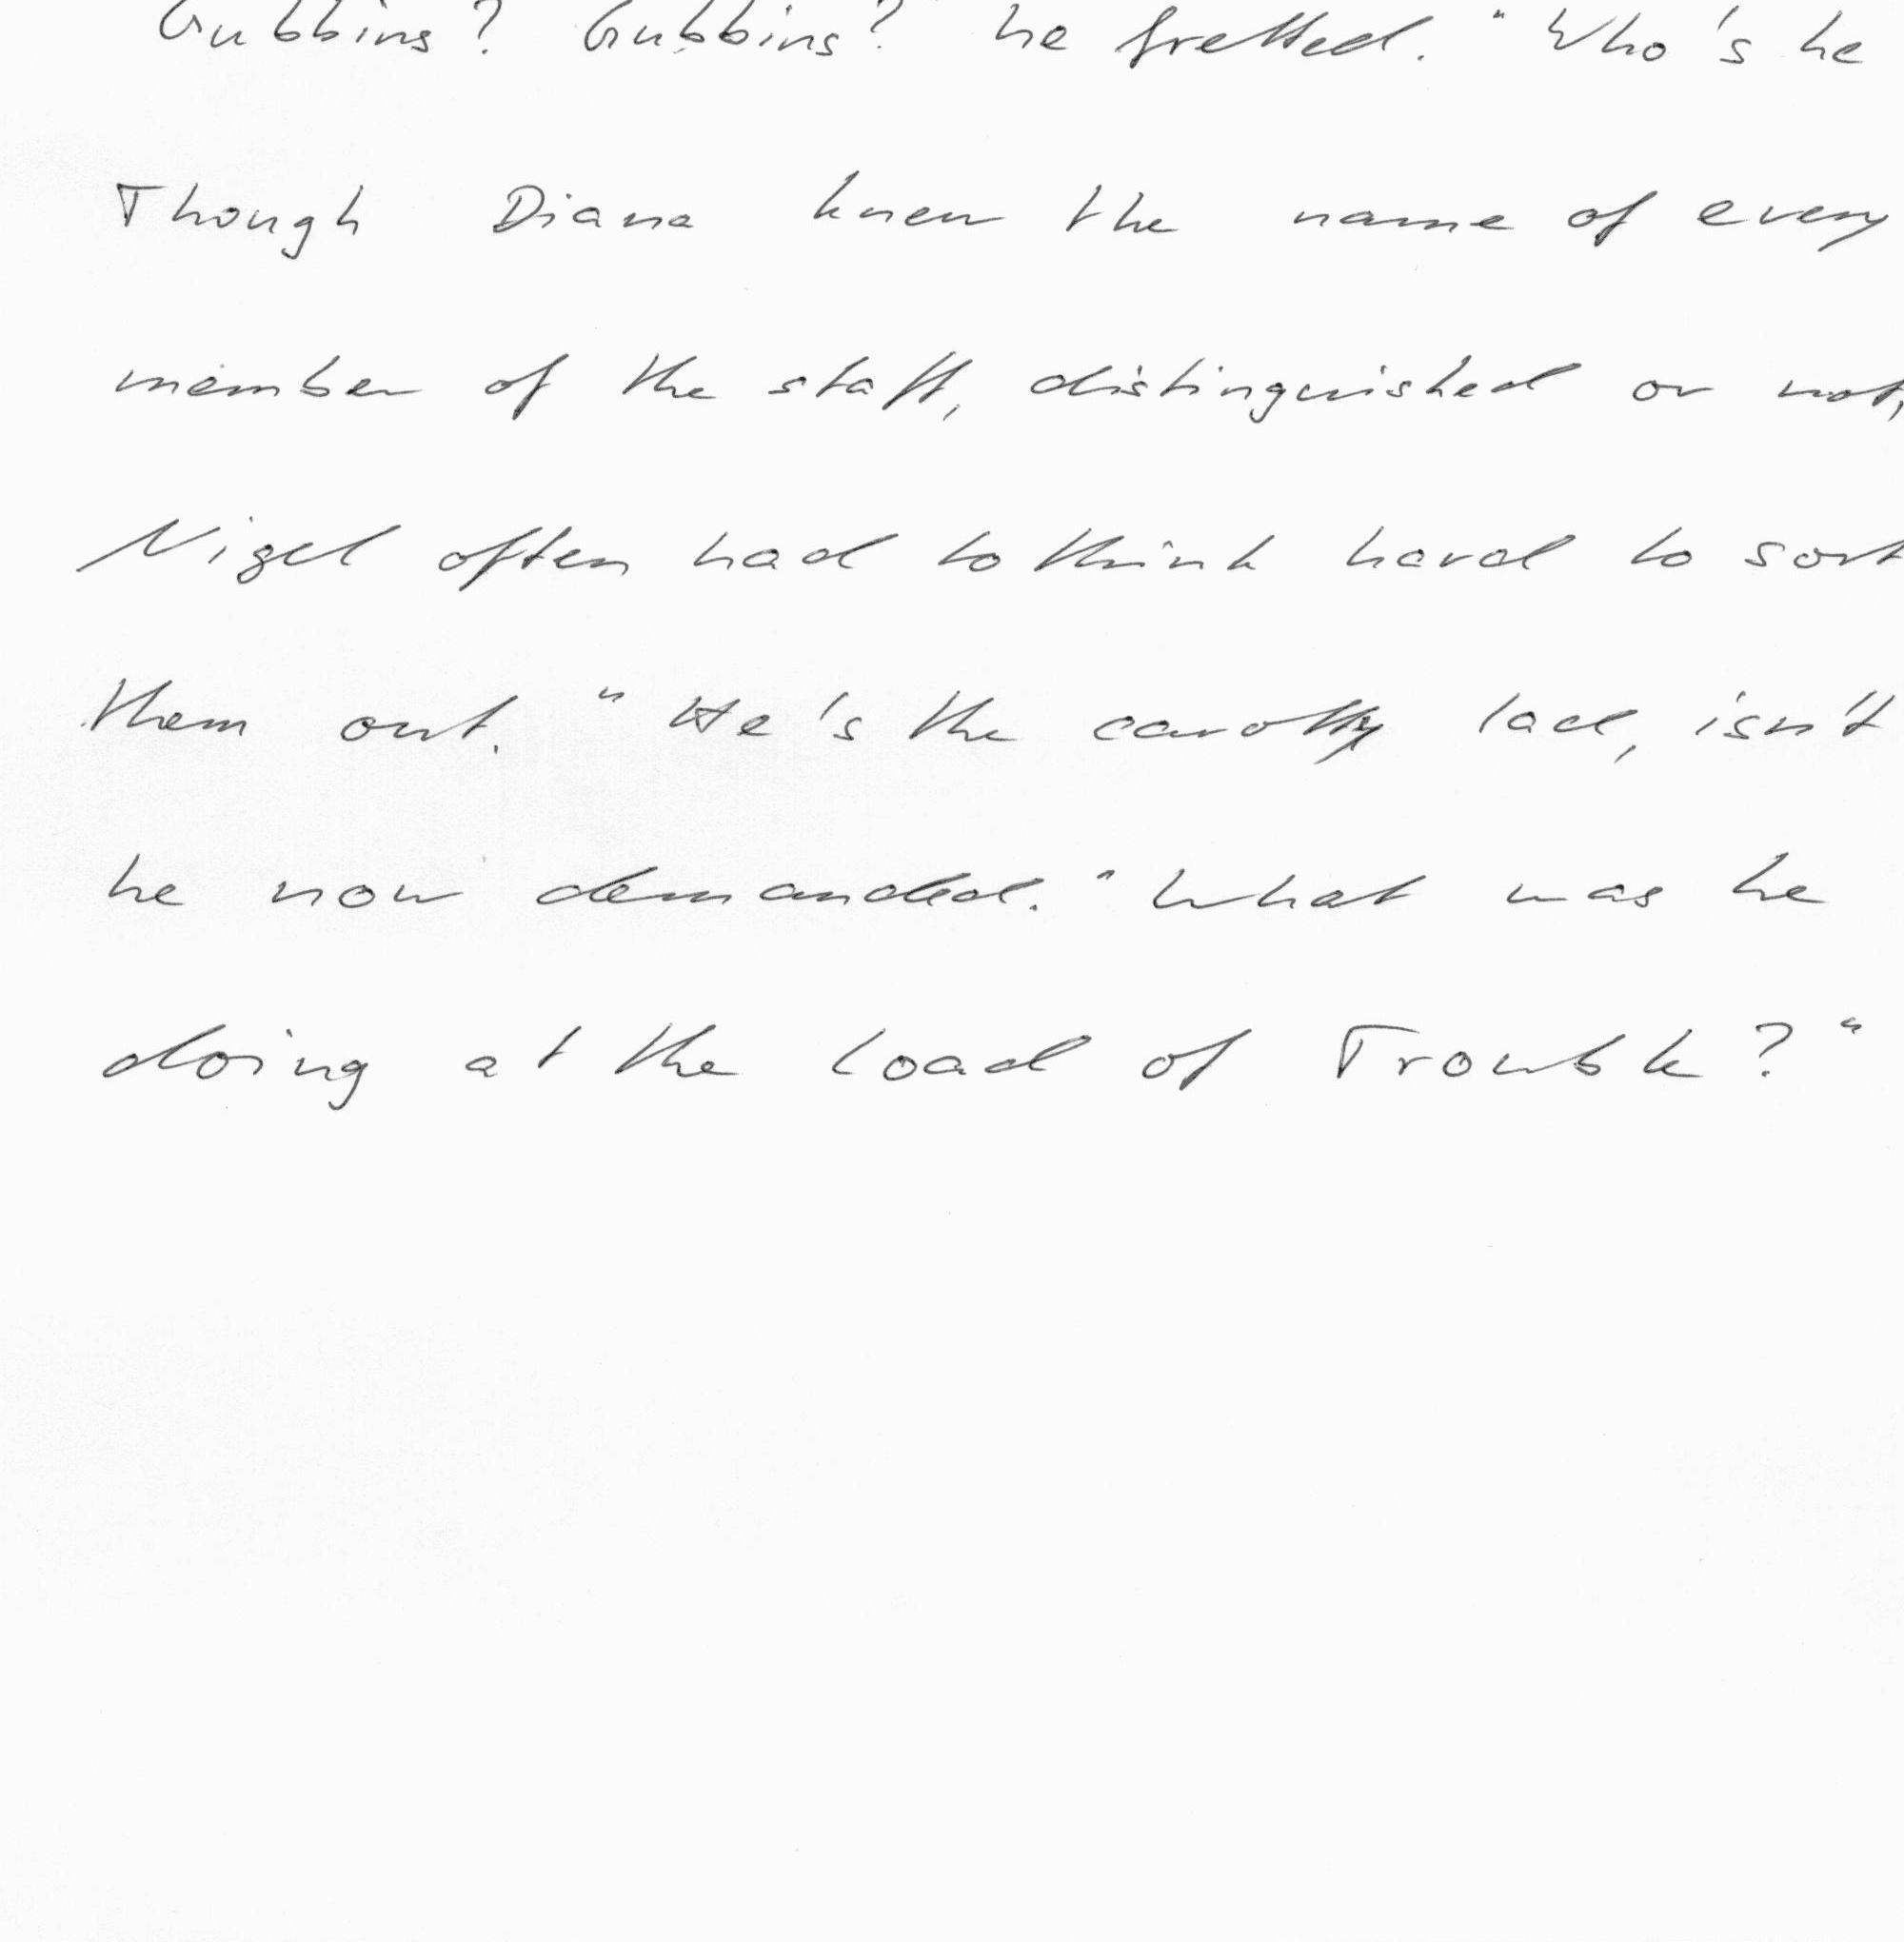 Gubbins? Gubbins?" he fretted. "Who's he
Though Diana knew the name of every
member of the staff, distinguished or not,
Nigel often had to think hard to sort
them out. "He's the carotty lad, isn't
he now demanded. "What was he
doing at the Load of Trouble?"